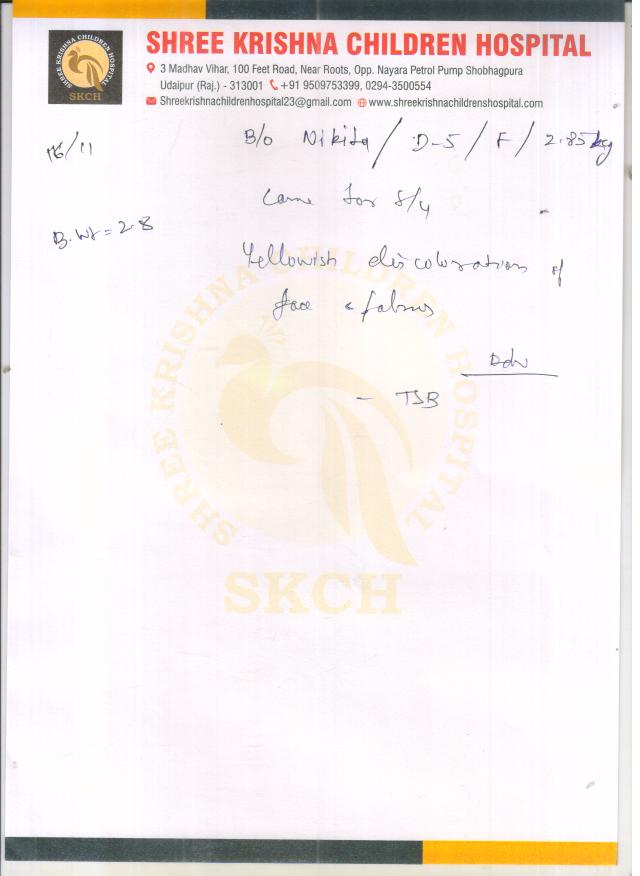 SHREE KRISHNA CHILDREN HOSPITAL
SHREE KRISHNA CHILDREN HOSPITAL
SKCH
3 Madhav Vihar, 100 Feet Road, Near Roots, Opp. Nayara Petrol Pump Shobhagpura
Udaipur (Raj.) - 313001 +91 9509753399, 0294-3500554
Shreekrishnachildrenhospital23@gmail.com www.shreekrishnachildrenshospital.com
16/11
B/o Nikita / D-5 / F / 2.85 kg
Came for f/u
B.Wt = 2.8
Yellowish discoloration of
face & palms
Adv
- TSB
SHREE KRISHNA CHILDREN HOSPITAL
SKCH